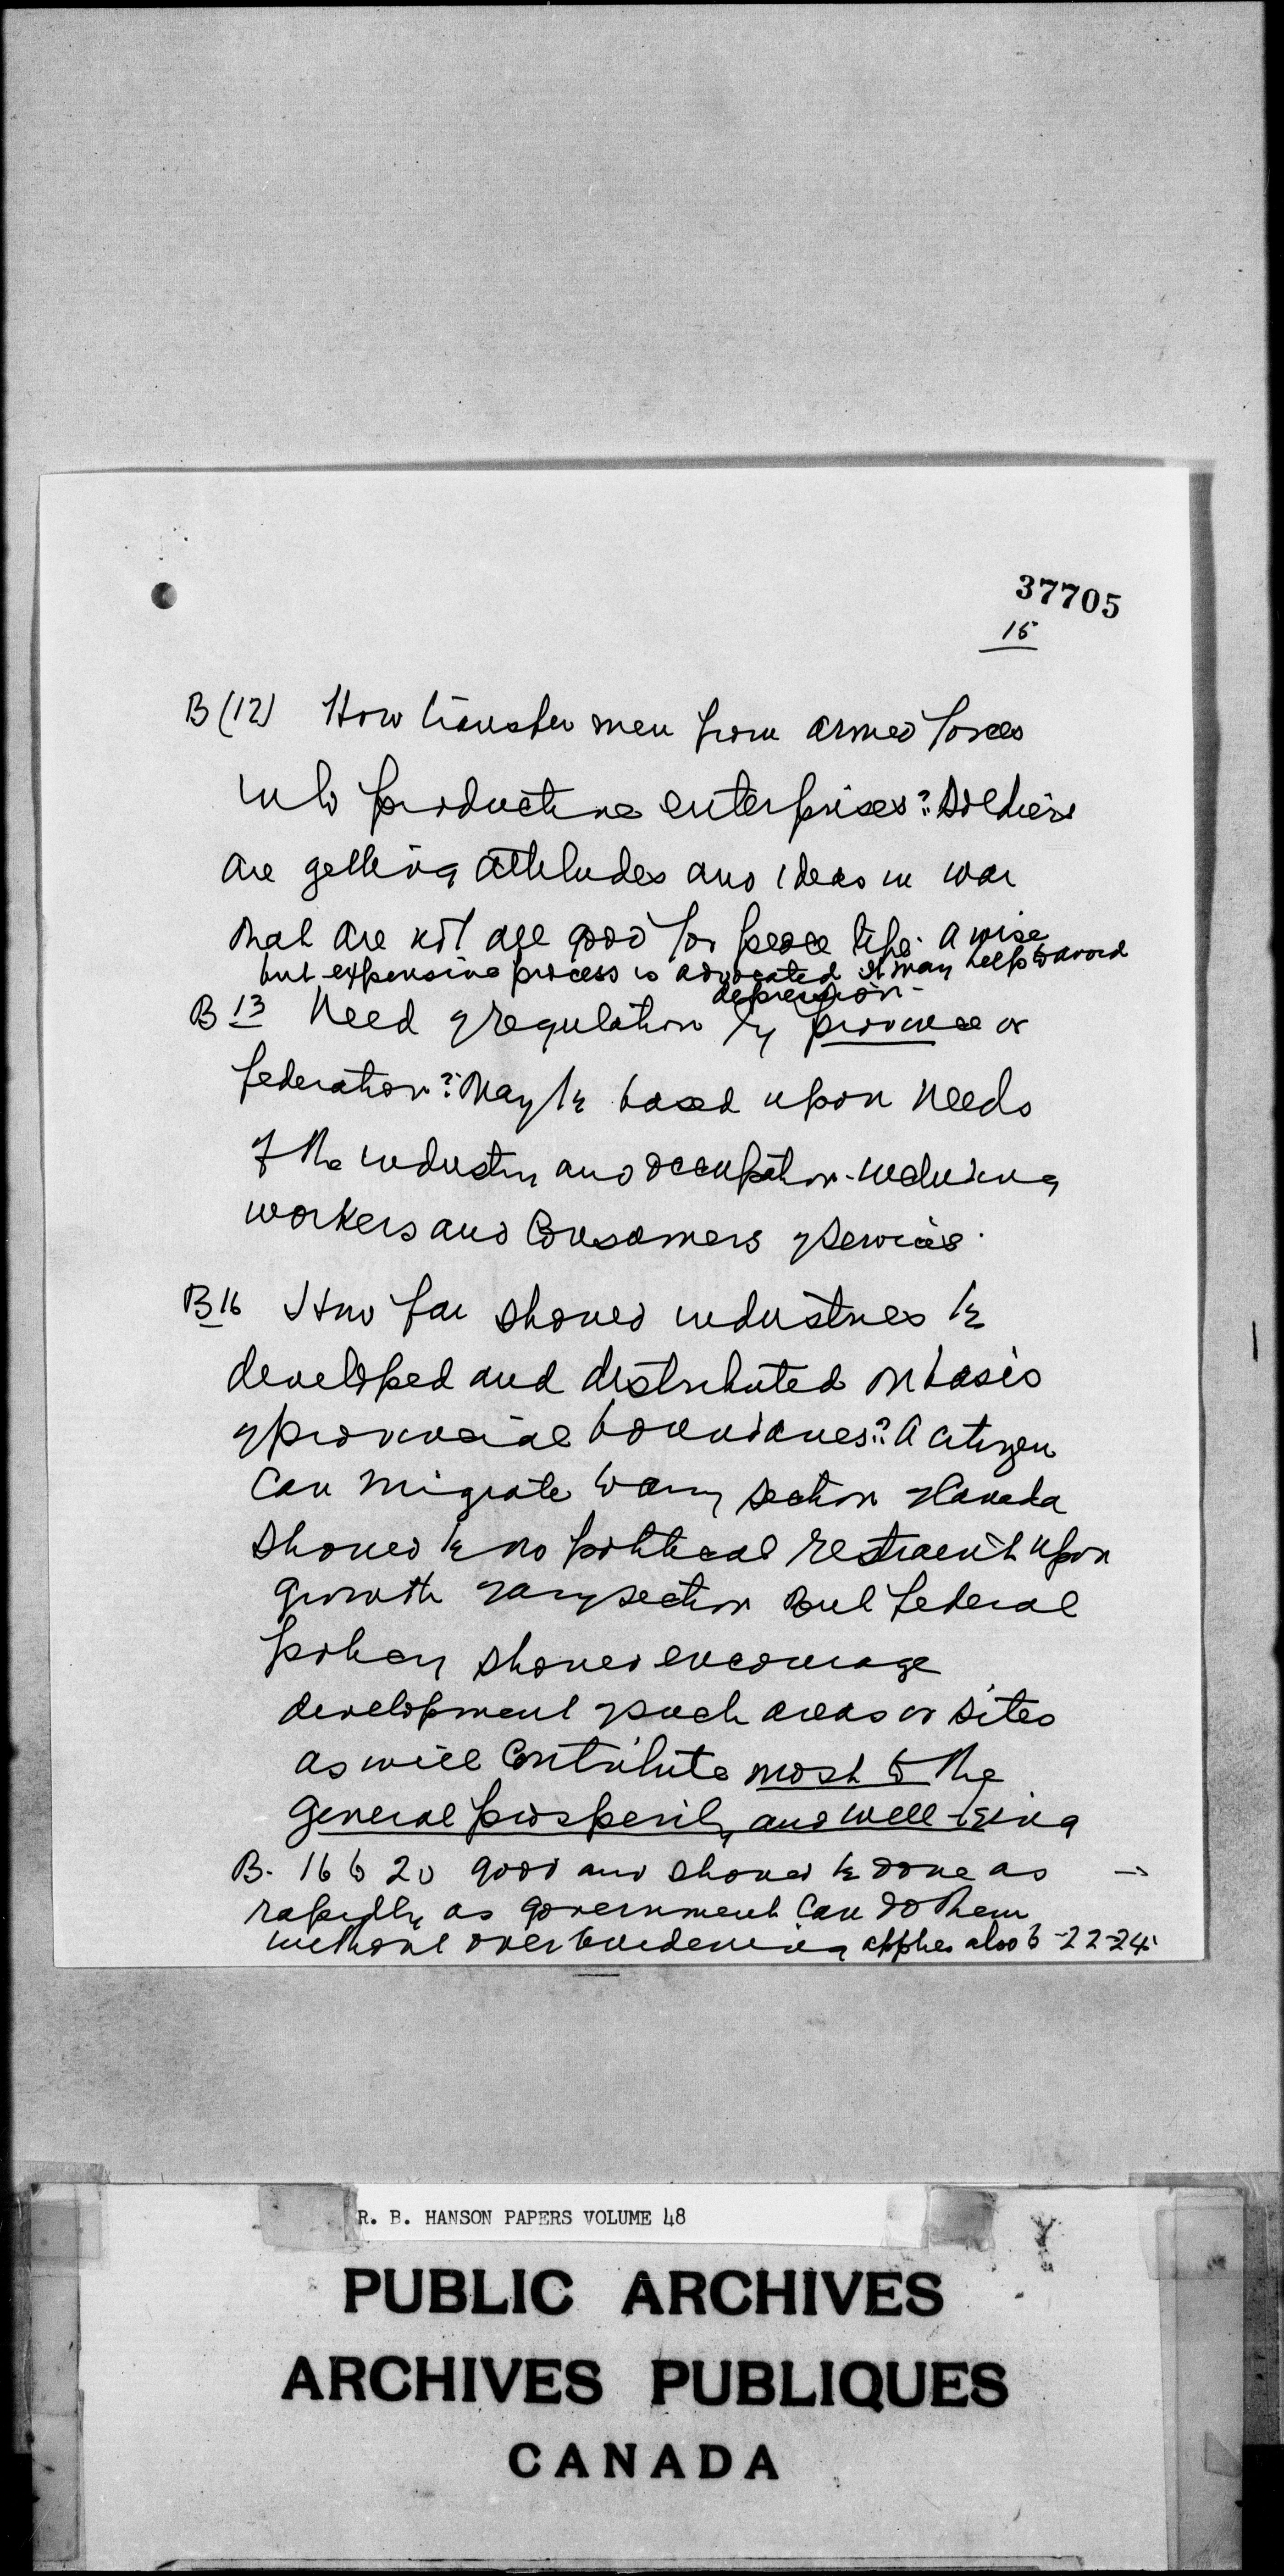 37705
15
B (12) How transfer men from armed forces
into productive enterprises? Soldiers
are getting attitudes and ideas in war
that are not all good for peace life. A wise
but expensive process is advocated it may help to avoid
depression-
B 13 Need of regulation by province or
federation? May be based upon needs
of the industry and occupation - including
workers and Consumers of service.
B 16 How far should industries be
developed and distributed on basis
of provincial boundaries? A citizen
Can migrate to any section of Canada
should be no political restraint upon
growth of any section but federal
policy should encourage
development of such areas or sites
as will Contribute most to the
general prosperity and well-being
B. 16 to 20 good and should be done as →
rapidly as government can do them
without overburdening applies also to 22-24
R. B. HANSON PAPERS VOLUME 48
PUBLIC ARCHIVES
ARCHIVES PUBLIQUES
CANADA